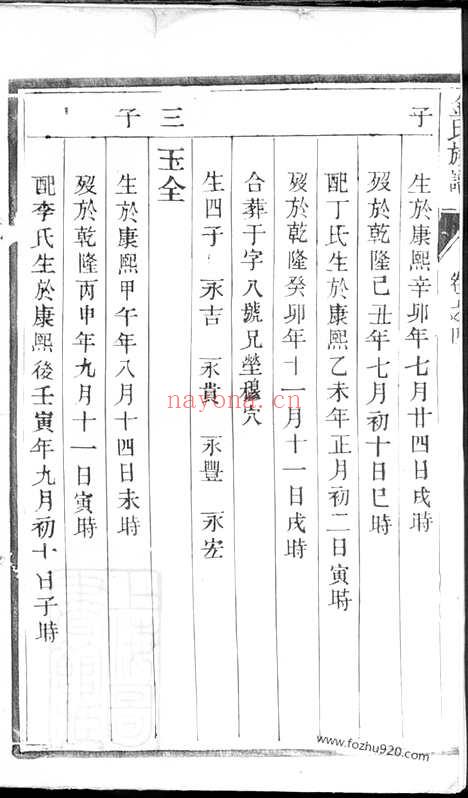 金氏族譜
卷之四
子
生於康熙辛卯年七月廿四日戌時
歿於乾隆己丑年七月初十日巳時
配丁氏生於康熙乙未年正月初二日寅時
歿於乾隆癸卯年十一月十一日戌時
合葬于字八號兄塋穆穴
生四子 永吉 永貴 永豐 永宏
三子
玉全
生於康熙甲午年八月十四日未時
歿於乾隆丙申年九月十一日寅時
配李氏生於康熙後壬寅年九月初十日子時
nayona.cn
www.fozhu920.com